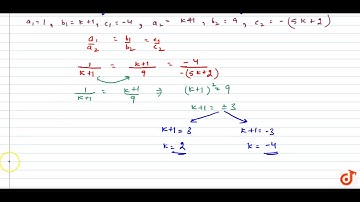 a₁ = 1, b₁ = k+1, c₁ = -4, a₂ = k+1, b₂ = 9, c₂ = -(5k+2)
a₁/a₂ = b₁/b₂ = c₁/c₂
1/(k+1) = (k+1)/9 = -4/-(5k+2)
1/(k+1) = (k+1)/9 ⇒ (k+1)² = 9
k+1 = ±3
k+1 = 3 k+1 = -3
k = 2 k = -4